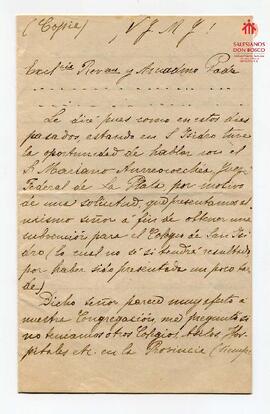 (Copia)
¡V. J. M. J!
SALESIANOS
DON BOSCO
y Amadmo Padre
Le diré pues como en estos días
pasados, estando en S. Isidro tuve
la oportunidad de hablar con el
S. Mariano Juez
Federal de La Plata, por motivo
de una solicitud, que presentamos el
mismo señor á fin de obtener una
subvención para el Colegio de San Isi-
dro (lo cual no sé si tendrá resultado
por haber sido presentada un poco tar-
de)
Dicho señor parece muy afecto á
nuestra Congregación, me preguntó si
no teníamos otros Colegios, Asilos, Hos-
pitales etc. en la Provincia (siempre